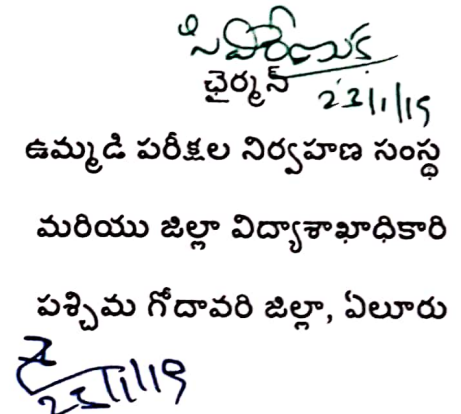 సి.వి.రేణుక
ఛైర్మన్
23/1/19
ఉమ్మడి పరీక్షల నిర్వహణ సంస్థ
మరియు జిల్లా విద్యాశాఖాధికారి
పశ్చిమ గోదావరి జిల్లా, ఏలూరు
23/1/19